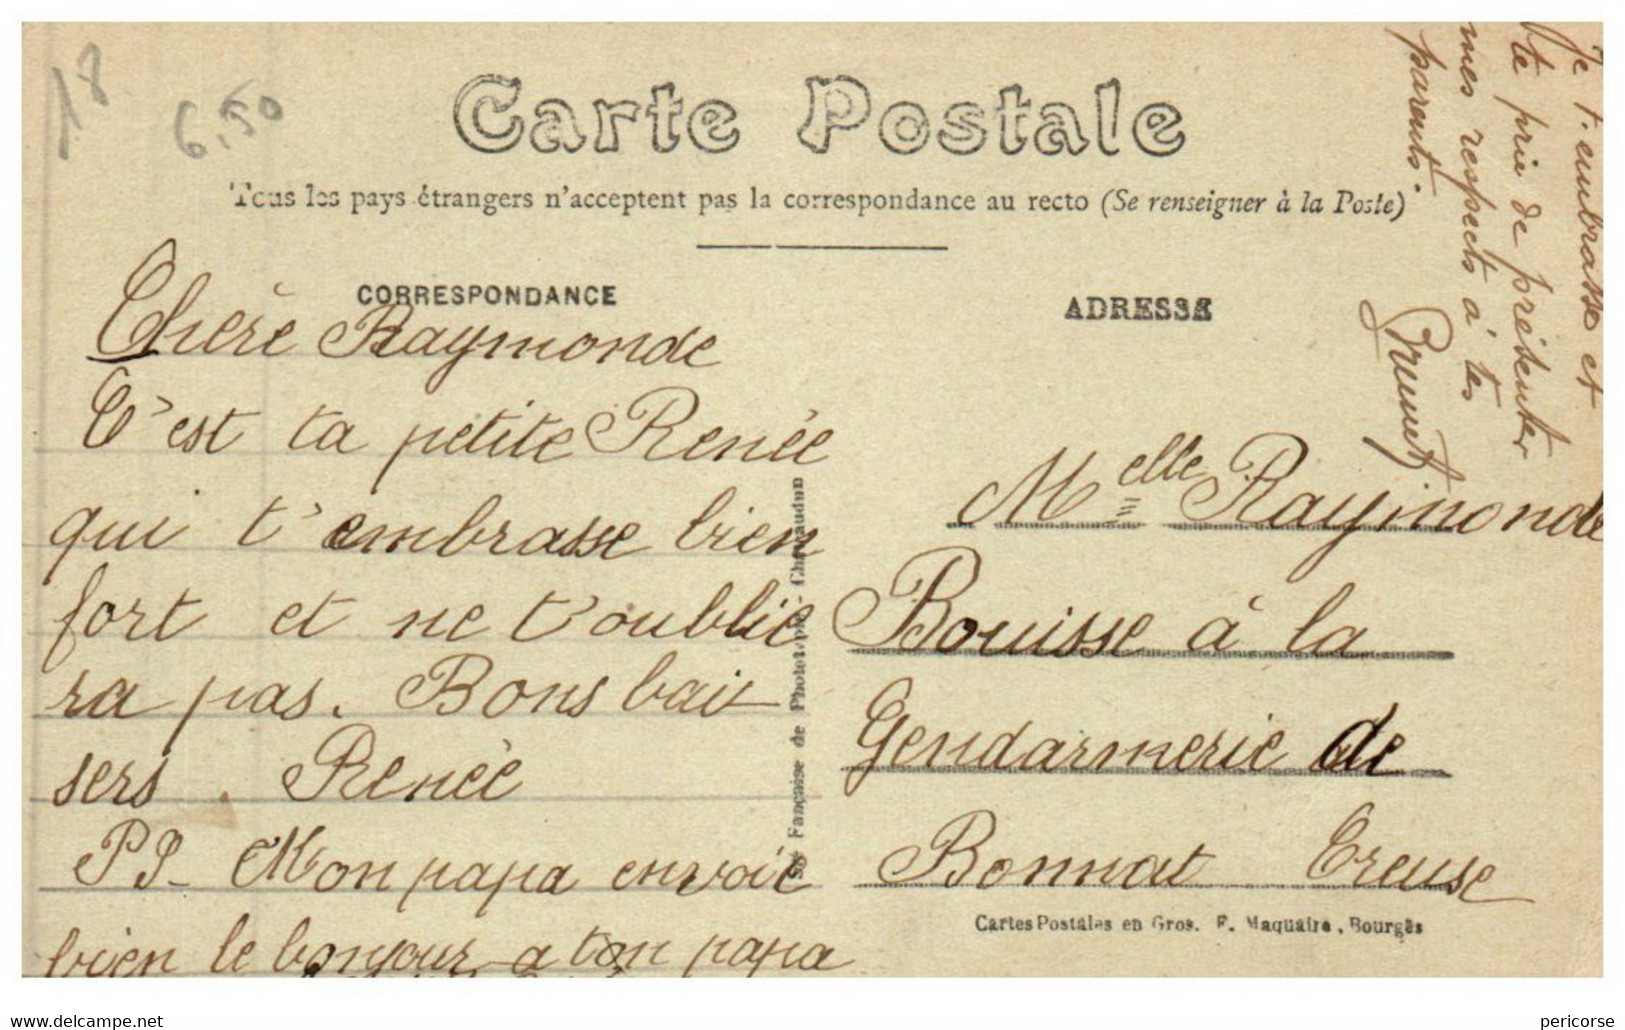 18
6,50
Carte Postale
Tous les pays étrangers n'acceptent pas la correspondance au recto (Se renseigner à la Poste)
CORRESPONDANCE
Chère Raymonde
C'est ta petite Renée
qui t'embrasse bien
fort et ne t'oublie
ra pas. Bons bai
sers. Renée
PS- Mon papa envoie
bien le bonjour a ton papa
Sté Fançaise de Phototypie - Chateaudun
ADRESSE
Melle Raymonde
Bouisse à la
Gendarmerie de
Bonnat Creuse
Cartes Postales en Gros. F. Maquaire, Bourges
Je t'embrasse et
te prie de présenter
mes respects à tes
parents.
www.delcampe.net
pericorse